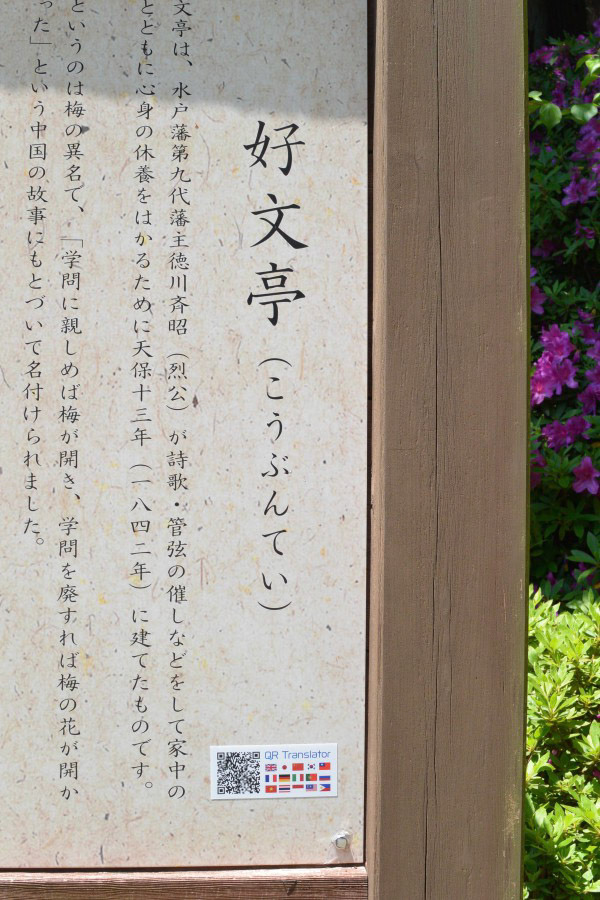 好文亭（こうぶんてい）
文亭は、水戸藩第九代藩主徳川斉昭（烈公）が詩歌・管弦の催しなどをして家中の
とともに心身の休養をはかるために天保十三年（一八四二年）に建てたものです。
というのは梅の異名で、「学問に親しめば梅が開き、学問を廃すれば梅の花が開か
った」という中国の故事にもとづいて名付けられました。
QR Translator